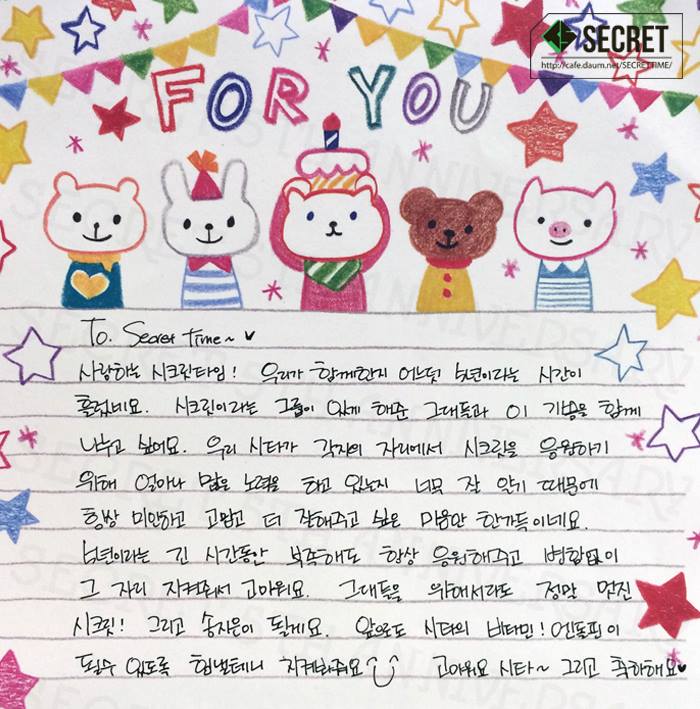 SECRET
http://cafe.daum.net/SECRETTIME/
FOR YOU
To. Secret Time~ ♥
사랑하는 시크릿타임! 우리가 함께한지 어느덧 5년이라는 시간이
흘렀네요. 시크릿이라는 그룹이 있게 해준 그대들과 이 기쁨을 함께
나누고 싶어요. 우리 시타가 각자의 자리에서 시크릿을 응원하기
위해 얼마나 많은 노력을 하고 있는지 너무 잘 알기 때문에
항상 미안하고 고맙고 더 잘해주고 싶은 마음만 한가득이네요.
5년이라는 긴 시간동안 부족해도 항상 응원해주고 변함없이
그 자리 지켜줘서 고마워요. 그대들을 위해서라도 정말 멋진
시크릿! 그리고 송지은이 될게요. 앞으로도 시타의 비타민! 엔돌핀이
될수 있도록 힘낼테니 지켜봐줘요 고마워요 시타~ 그리고 축하해요♥